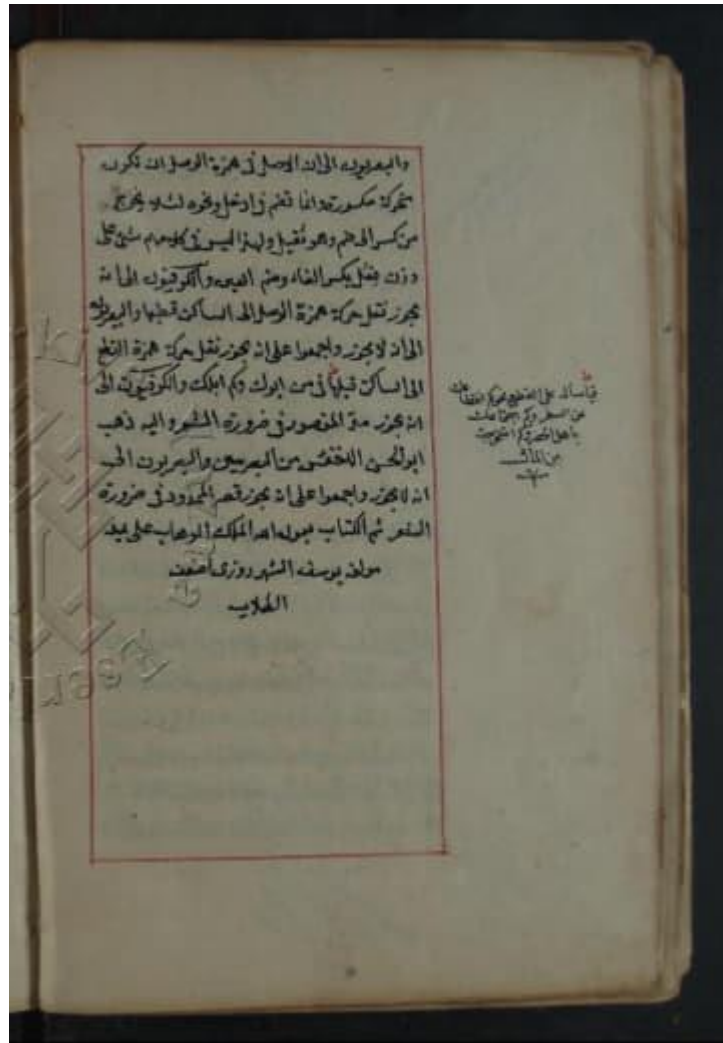 والبصريون الى ان الاصل فى همزة الوصل ان تكون
متحركة مكسورة وانما تضم فى ادخل ونحوه لئلا يخرج
من كسر الى ضم وهو ثقيل ولهذا ليس فى كلامهم شئ على
وزن فعل بكسر الفاء وضم العين والكوفيون الى انه
يجوز نقل حركة همزة الوصل الى الساكن قبلها والبصريون
الى انه لا يجوز واجمعوا على انه يجوز نقل حركة همزة القطع
الى الساكن قبلها فى من ابوك وكم ابلك والكوفيون الى
انه يجوز مد المقصور فى ضرورة الشعر واليه ذهب
ابو الحسن الاخفش من البصريين والبصريون الى
انه لا يجوز واجمعوا على انه يجوز قصر الممدود فى ضرورة
الشعر تم الكتاب بعون الله الملك الوهاب على يد
مولفه يوسف الشهرزورى اضعف
الطلاب
من